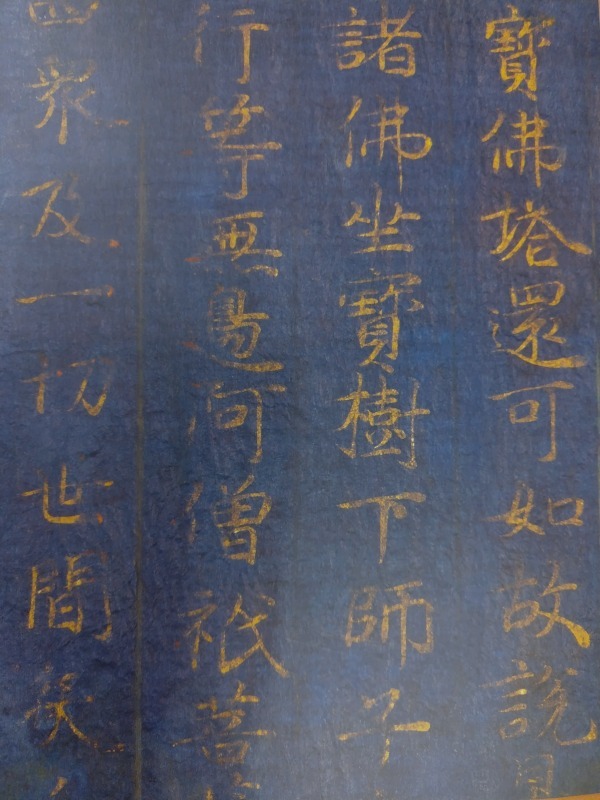 寶佛塔還可如故說是
諸佛坐寶樹下師子
行等無邊阿僧祇菩
四眾及一切世間